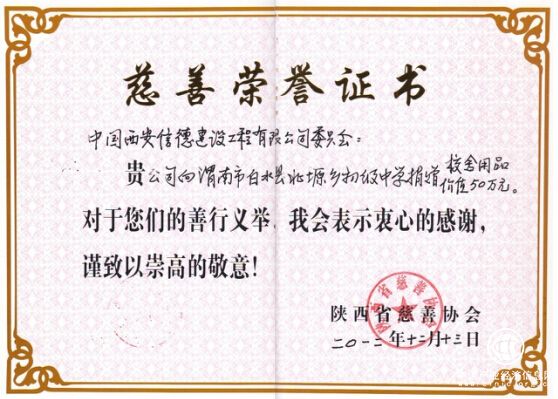 慈善荣誉证书
中国西安信德建设工程有限公司委员会:
贵公司向渭南市白水县北塬乡初级中学捐赠校舍用品价值50万元。
对于您们的善行义举,我会表示衷心的感谢,
谨致以崇高的敬意!
陕西省慈善协会
二〇一二年十二月十三日
陕西省慈善协会